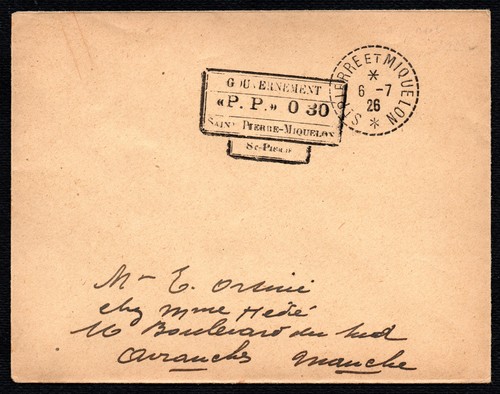 GOUVERNEMENT
«P. P.» 0 30
SAINT PIERRE-MIQUELON
St-PIERRE
ST PIERRE ET MIQUELON
*
6 -7
26
*
Mr E. Orsini
chez Mme Hédé
16 Boulevard du Sud
Avranches Manche